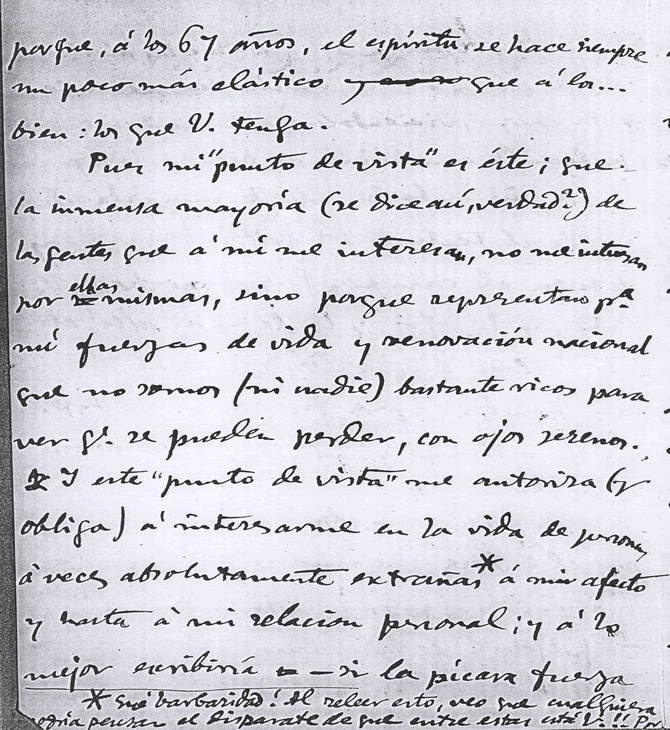 porque, á los 67 años, el espíritu se hace siempre
un poco más elástico que á los...
bien: los que V. tenga.
Pues mi "punto de vista" es éste; que
la inmensa mayoría (se dice así, verdad?) de
las gentes que á mí me interesan, no me interesan
por ellas mismas, sino porque representan pª
mí fuerzas de vida y renovación nacional
que no somos (ni nadie) bastante ricos para
ver q. se pueden perder, con ojos serenos.
Y este "punto de vista" me autoriza (y
obliga) á interesarme en la vida de personas
á veces absolutamente extrañas* á mi afecto
y hasta á mi relación personal; y á lo
mejor escribiría — si la pícara fuerza
* Qué barbaridad! Al releer esto, veo que cualquiera
podría pensar el disparate de que entre estas está V.!! Por